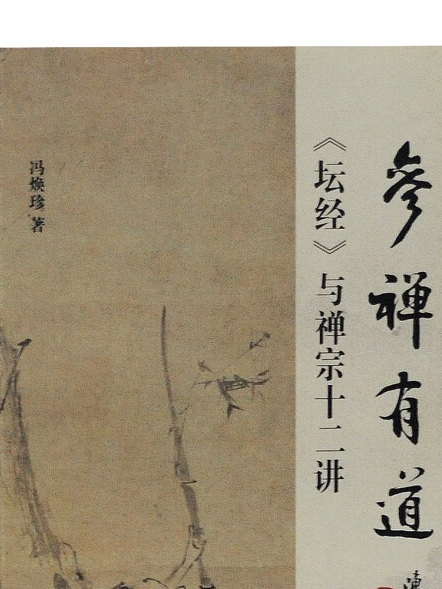 參禅有道
《坛经》与禅宗十二讲
冯焕珍 著